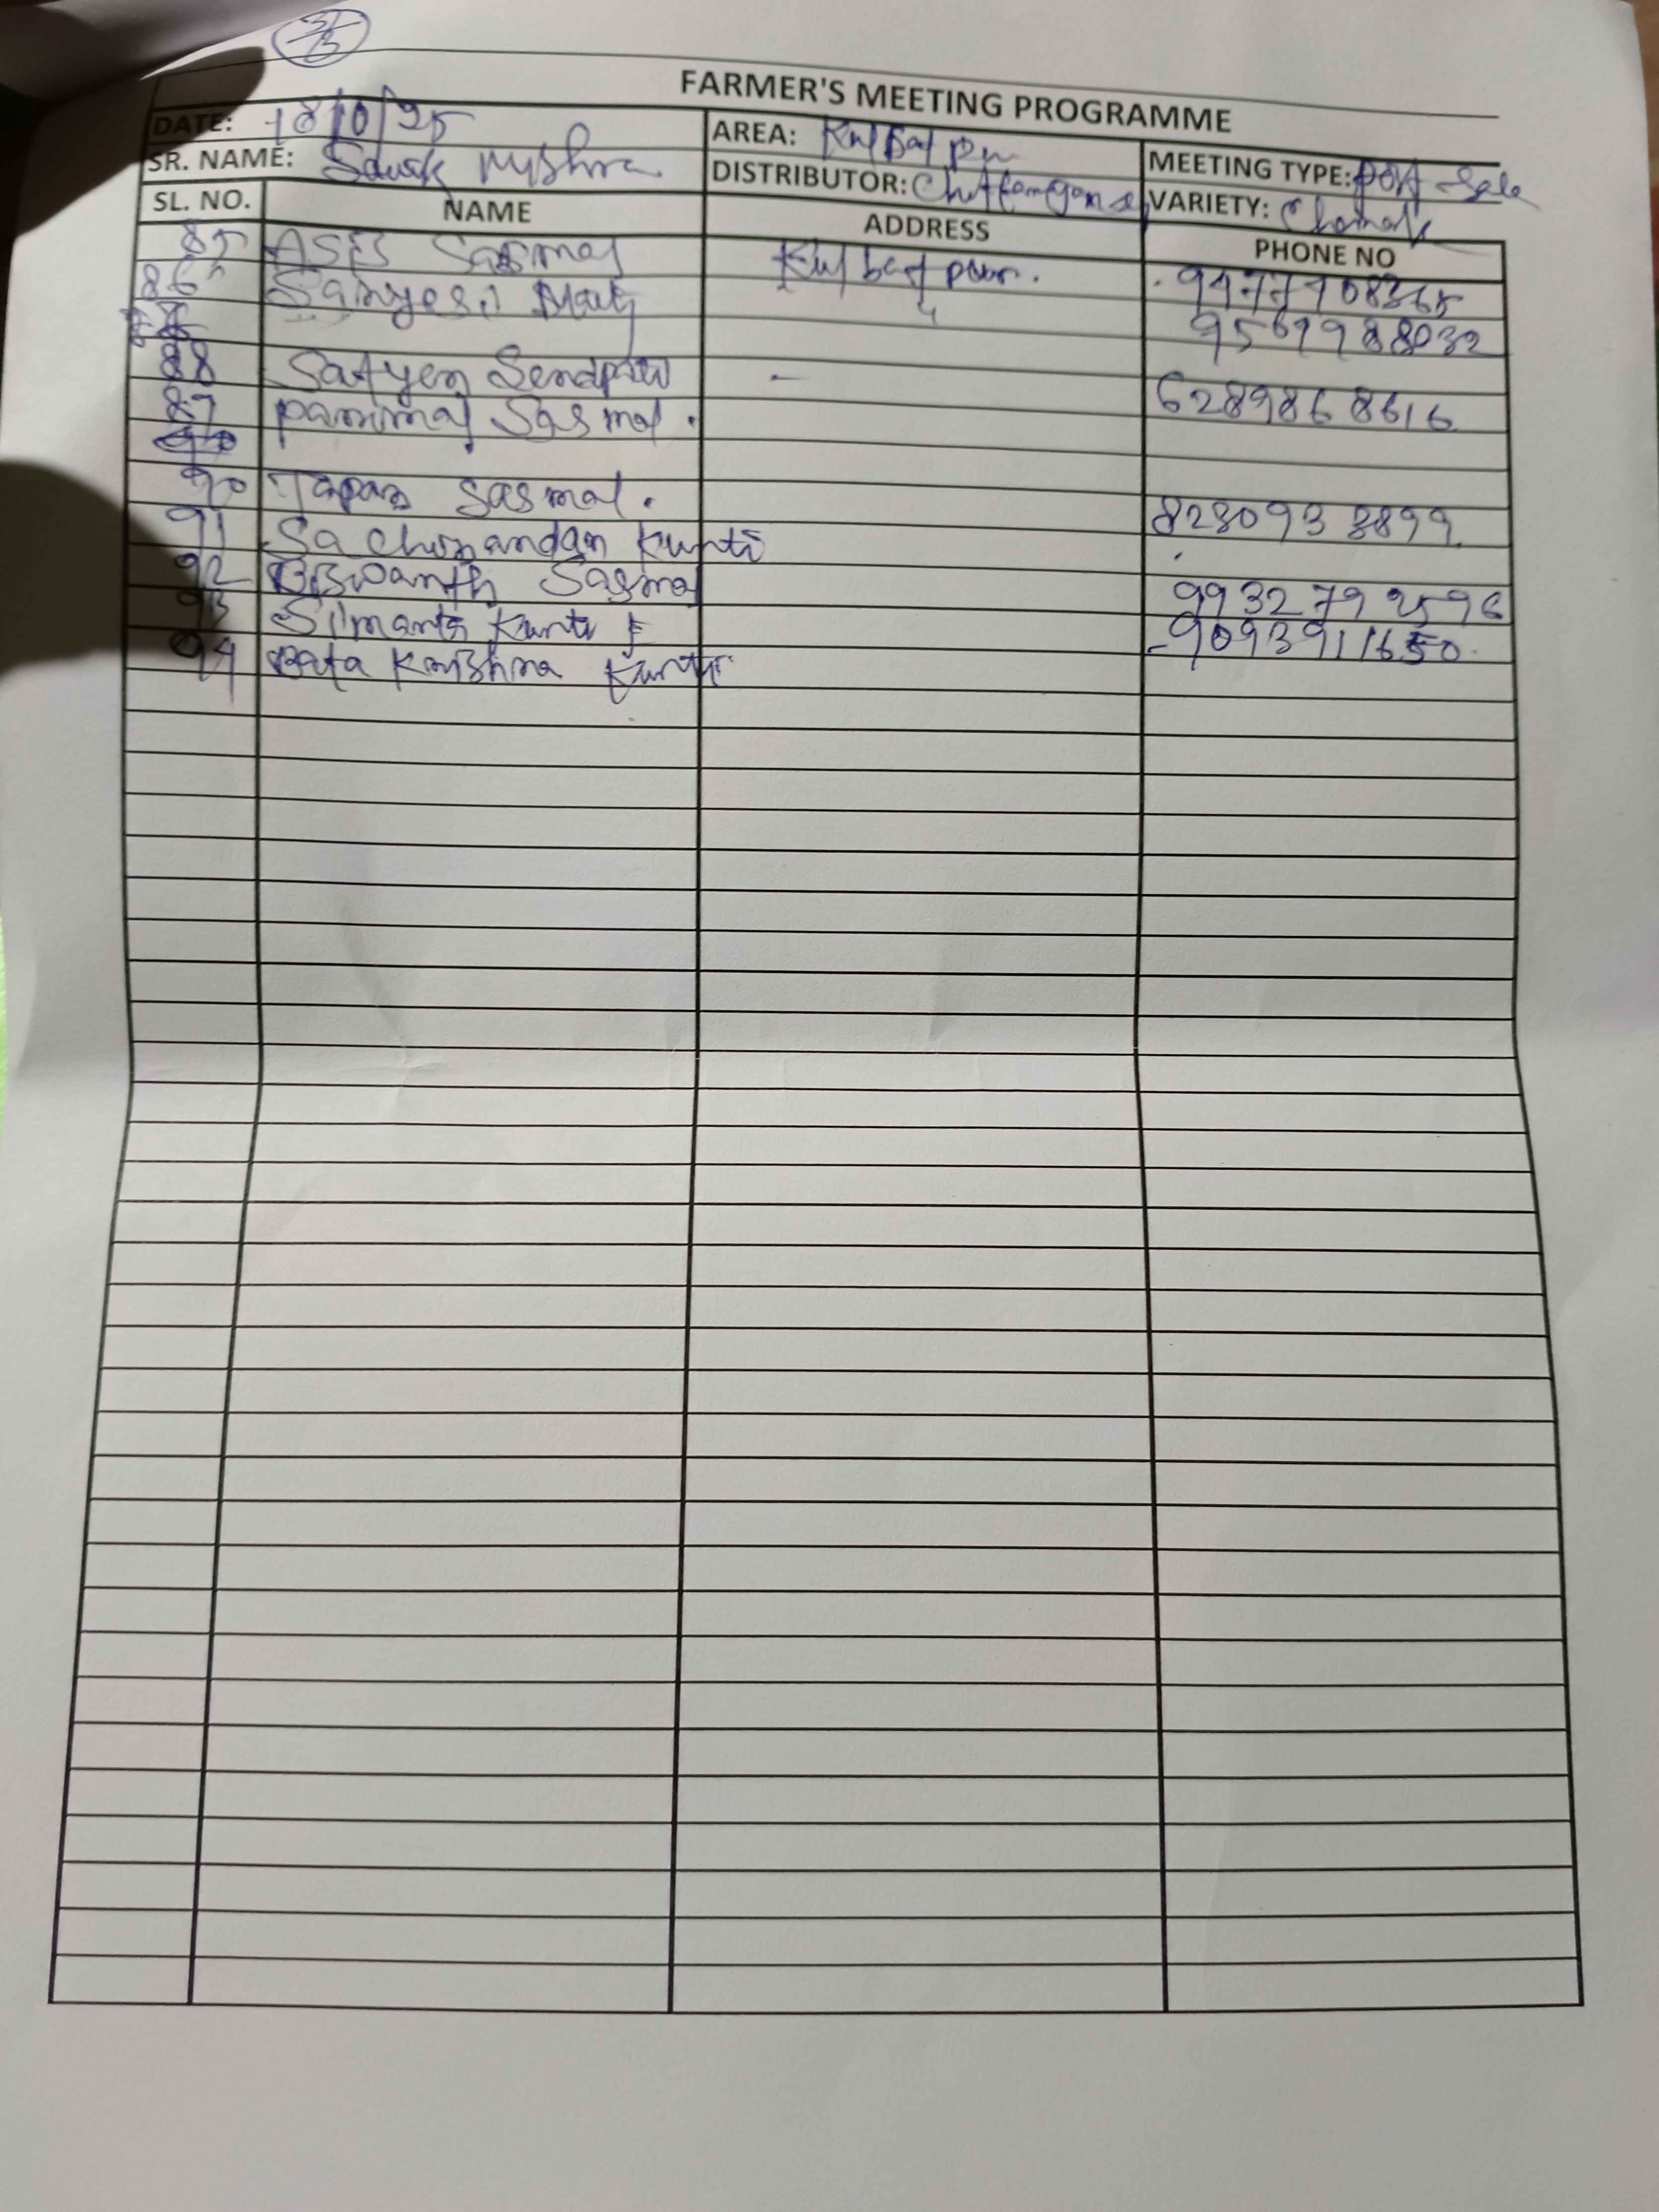 3/3
FARMER'S MEETING PROGRAMME
DATE: 18/10/25 AREA: Kulbatpur MEETING TYPE: Post-Sale
SR. NAME: Souvik Mishra DISTRIBUTOR: VARIETY: Chamak
SL. NO. NAME ADDRESS PHONE NO
85 ASIS Sasmal Kulbatpur. 9477708365
86 Sanyesi Maity 9569988032
88 Satyen Senapati - 6289868616
Parimal Sasmal.
90 Tapas Sasmal. 8280933899
91 Sachinandan Kunti
92 Biswanth Sasmal 9932792596
93 Srimanta Kunti 9093911650
94 Bata Krishna Kunti